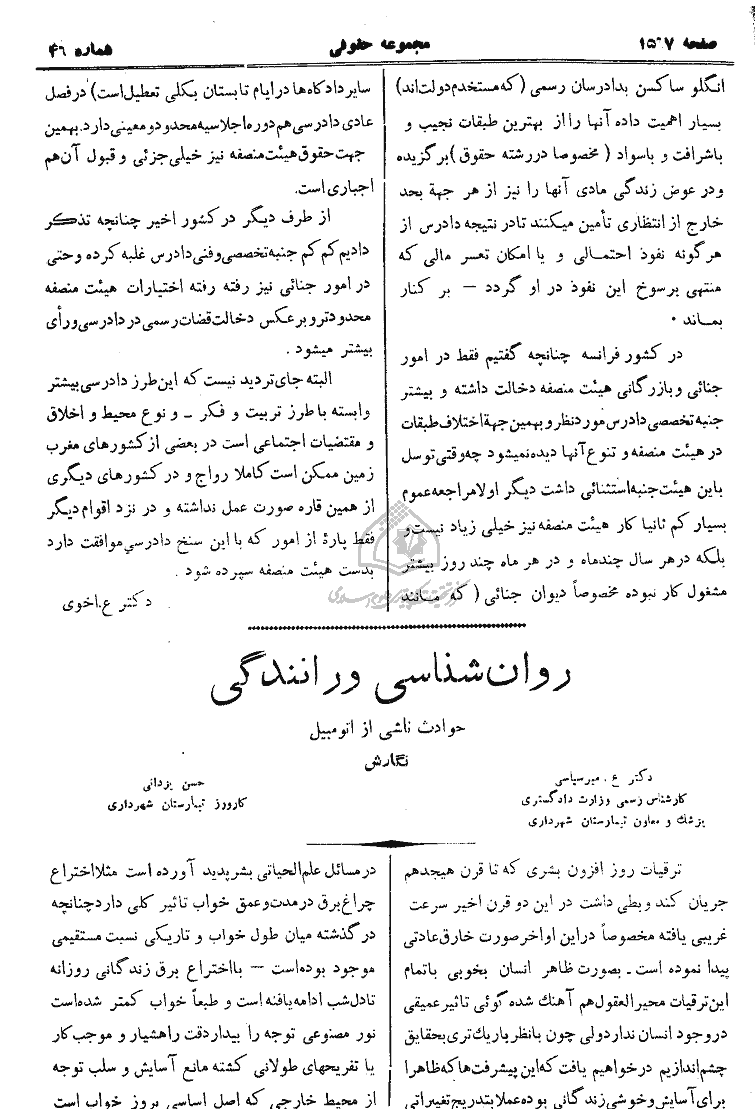 صفحه ۱۵۰۷
مجموعه حقوقی
شماره ۴۶
انگلو ساکسن بدادرسان رسمی (که مستخدم دولت‌اند)
بسیار اهمیت داده آنها را از بهترین طبقات نجیب و
باشرافت و باسواد (مخصوصا در رشته حقوق) برگزیده
و در عوض زندگی مادی آنها را نیز از هر جهة بحد
خارج از انتظاری تأمین میکنند تا در نتیجه دادرس از
هرگونه نفوذ احتمالی و یا امکان تعسر مالی که
منتهی برسوخ این نفوذ در او گردد – بر کنار
بماند .
در کشور فرانسه چنانچه گفتیم فقط در امور
جنائی و بازرگانی هیئت منصفه دخالت داشته و بیشتر
جنبه تخصصی دادرس مورد نظر و بهمین جهة اختلاف طبقات
در هیئت منصفه و تنوع آنها دیده نمیشود چه وقتی توسل
باین هیئت جنبه استثنائی داشت دیگر اولا مراجعه عموم
بسیار کم ثانیا کار هیئت منصفه نیز خیلی زیاد نیست و
بلکه در هر سال چند ماه و در هر ماه چند روز بیشتر
مشغول کار نبوده مخصوصاً دیوان جنائی (که مانند
سایر دادگاه‌ها در ایام تابستان بکلی تعطیل است) در فصل
عادی دادرسی هم دوره اجلاسیه محدود و معینی دارد. بهمین
جهت حقوق هیئت منصفه نیز خیلی جزئی و قبول آن هم
اجباری است.
از طرف دیگر در کشور اخیر چنانچه تذکر
دادیم کم کم جنبه تخصصی و فنی دادرس غلبه کرده و حتی
در امور جنائی نیز رفته رفته اختیارات هیئت منصفه
محدودتر و برعکس دخالت قضات رسمی در دادرسی و رأی
بیشتر میشود .
البته جای تردید نیست که این طرز دادرسی بیشتر
وابسته با طرز تربیت و فکر – و نوع محیط و اخلاق
و مقتضیات اجتماعی است در بعضی از کشورهای مغرب
زمین ممکن است کاملا رواج و در کشورهای دیگری
از همین قاره صورت عمل نداشته و در نزد اقوام دیگر
فقط پارهٔ از امور که با این سنخ دادرسی موافقت دارد
بدست هیئت منصفه سپرده شود .
دکتر ع. اخوی
روان شناسی و رانندگی
حوادث ناشی از اتومبیل
نگارش
دکتر ع . میرسپاسی
کارشناس رسمی وزارت دادگستری
پزشك و معاون تیمارستان شهرداری
حسن یزدانی
کارورز تیمارستان شهرداری
ترقیات روز افزون بشری که تا قرن هیجدهم
جریان کند و بطی داشت در این دو قرن اخیر سرعت
غریبی یافته مخصوصاً در این اواخر صورت خارق عادتی
پیدا نموده است ـ بصورت ظاهر انسان بخوبی با تمام
این ترقیات محیرالعقول هم آهنك شده گوئی تاثیر عمیقی
در وجود انسان ندارد ولی چون با نظر باریك تری بحقایق
چشم اندازیم در خواهیم یافت که این پیشرفت‌ها که ظاهرا
برای آسایش و خوشی زندگانی بوده عملا بتدریج تغییراتی
در مسائل علم الحیاتی بشر پدید آورده است مثلا اختراع
چراغ برق در مدت و عمق خواب تاثیر کلی دارد چنانچه
در گذشته میان طول خواب و تاریکی نسبت مستقیمی
موجود بوده‌است – با اختراع برق زندگانی روزانه
تا دل شب ادامه یافته است و طبعاً خواب کمتر شده است
نور مصنوعی توجه را بیدار دقت را هشیار و موجب کار
یا تفریحهای طولانی گشته مانع آسایش و سلب توجه
از محیط خارجی که اصل اساسی بروز خواب است